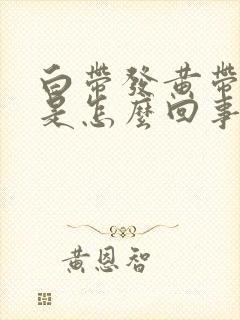 白帶發黃帶
是怎麼回事
黃恩智